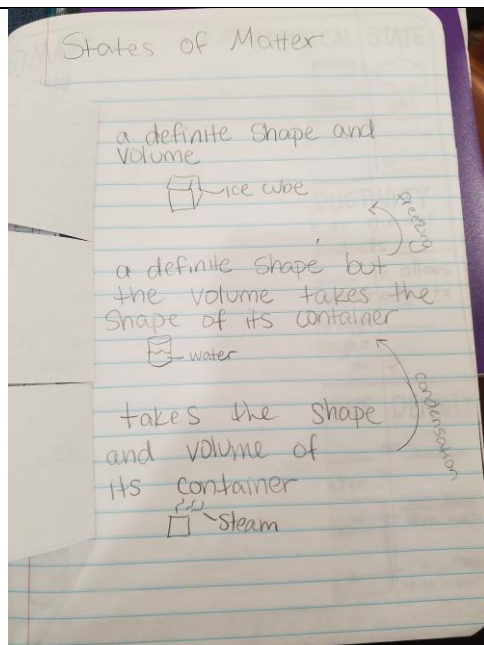 States of Matter
a definite shape and
volume
ice cube
freezing
a definite shape but
the volume takes the
shape of its container
water
condensation
takes the shape
and volume of
its container
steam